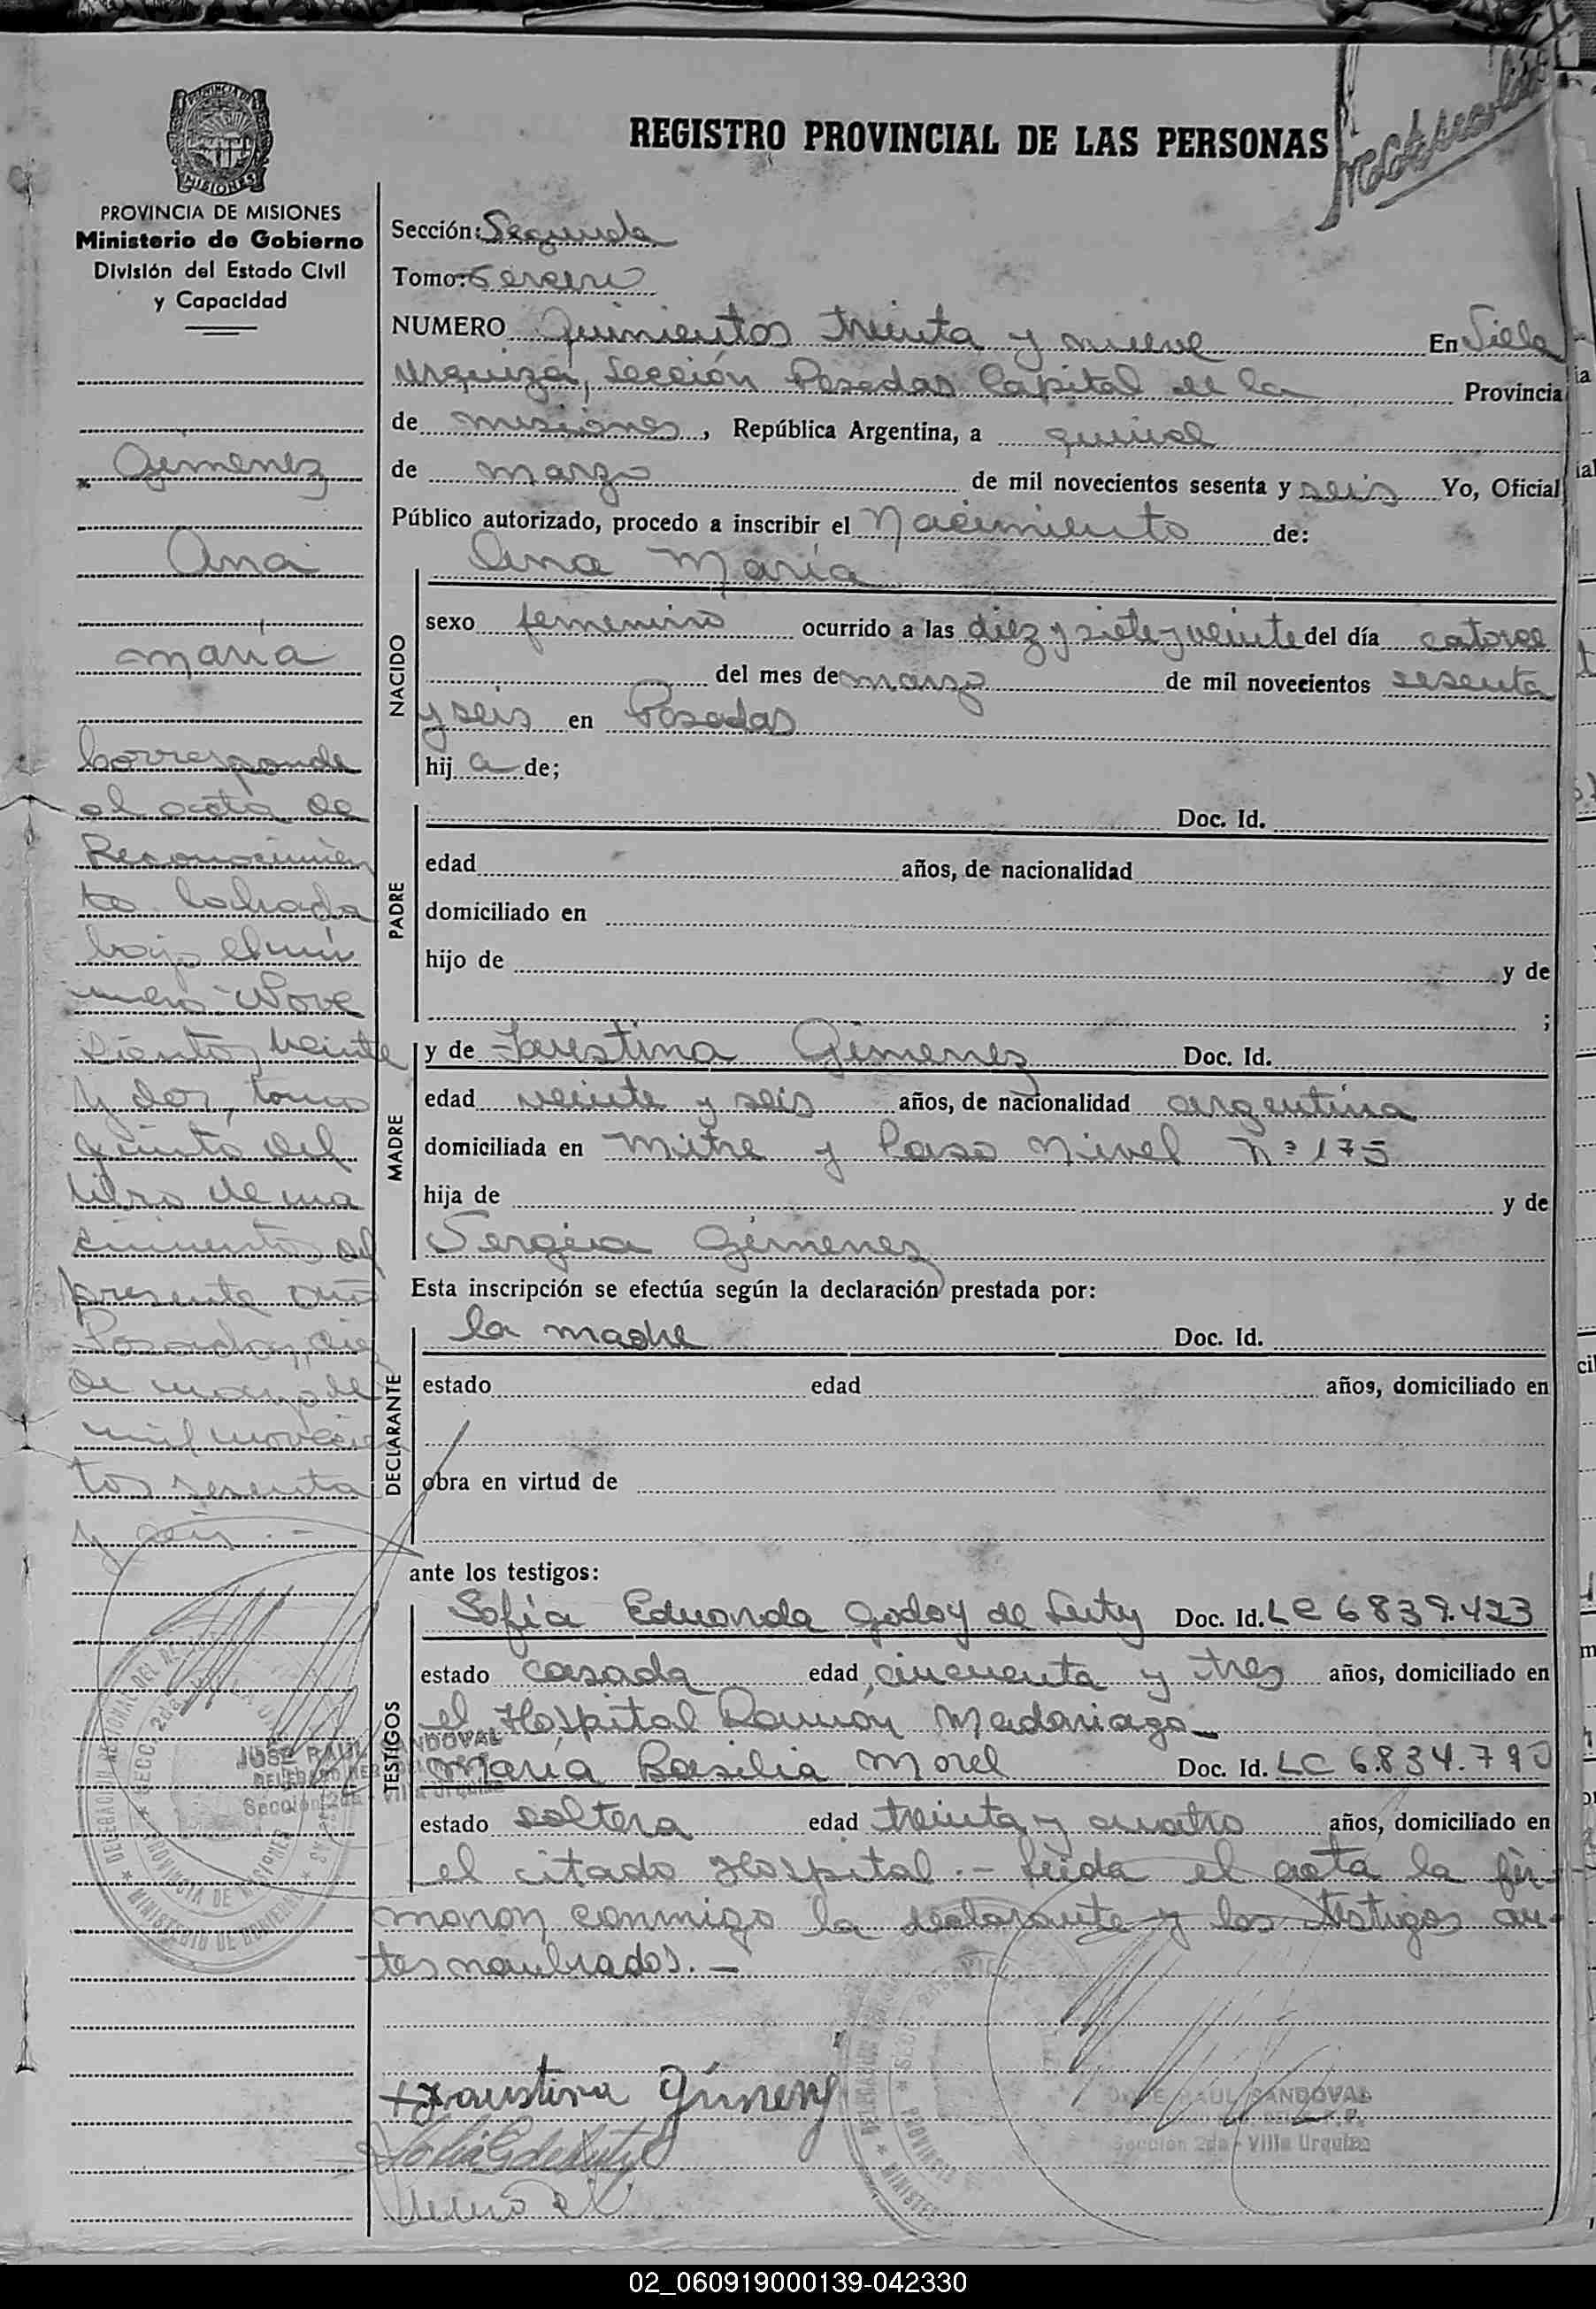 REGISTRO PROVINCIAL DE LAS PERSONAS
PROVINCIA DE
MISIONES
PROVINCIA DE MISIONES
Ministerio de Gobierno
División del Estado Civil
y Capacidad
Gimenez
Ana
María
Corresponde
al acta de
Reconocimien
to labrada
bajo el nú
mero Nove
cientos veinte
y dos, tomo
quinto del
libro de na
cimientos del
presente año
Posadas, diez
de mayo de
mil novecien
tos sesenta
y seis.-
JOSE RAUL SANDOVAL
Sección 2da - Villa Urquiza
Sección: Segunda
Tomo: Tercero
NUMERO Quinientos treinta y nueve En Villa
Urquiza, Sección Posadas Capital de la Provincia
de Misiones, República Argentina, a quince
de marzo de mil novecientos sesenta y seis Yo, Oficial
Público autorizado, procedo a inscribir el Nacimiento de:
NACIDO
Ana María
sexo femenino ocurrido a las diez y siete y veinte del día catorce
del mes de marzo de mil novecientos sesenta
y seis en Posadas
hij a de;
PADRE
Doc. Id.
edad años, de nacionalidad
domiciliado en
hijo de y de
;
MADRE
y de Faustina Gimenez Doc. Id.
edad veinte y seis años, de nacionalidad argentina
domiciliada en Mitre y Paso Nivel Nº 175
hija de y de
Sergia Gimenez
Esta inscripción se efectúa según la declaración prestada por:
DECLARANTE
la madre Doc. Id.
estado edad años, domiciliado en
obra en virtud de
ante los testigos:
TESTIGOS
Sofía Eduarda Godoy de Doc. Id. LC 6839.423
estado casada edad, cincuenta y tres años, domiciliado en
el Hospital Ramón Madariaga
María Basilia Morel Doc. Id. LC 6.834.790
estado soltera edad treinta y cuatro años, domiciliado en
el citado Hospital.- Leída el acta la fir-
maron conmigo la declarante y los testigos an-
tes nombrados.-
Faustina Gimenez
JOSE RAUL SANDOVAL
Sección 2da - Villa Urquiza
02_060919000139-042330